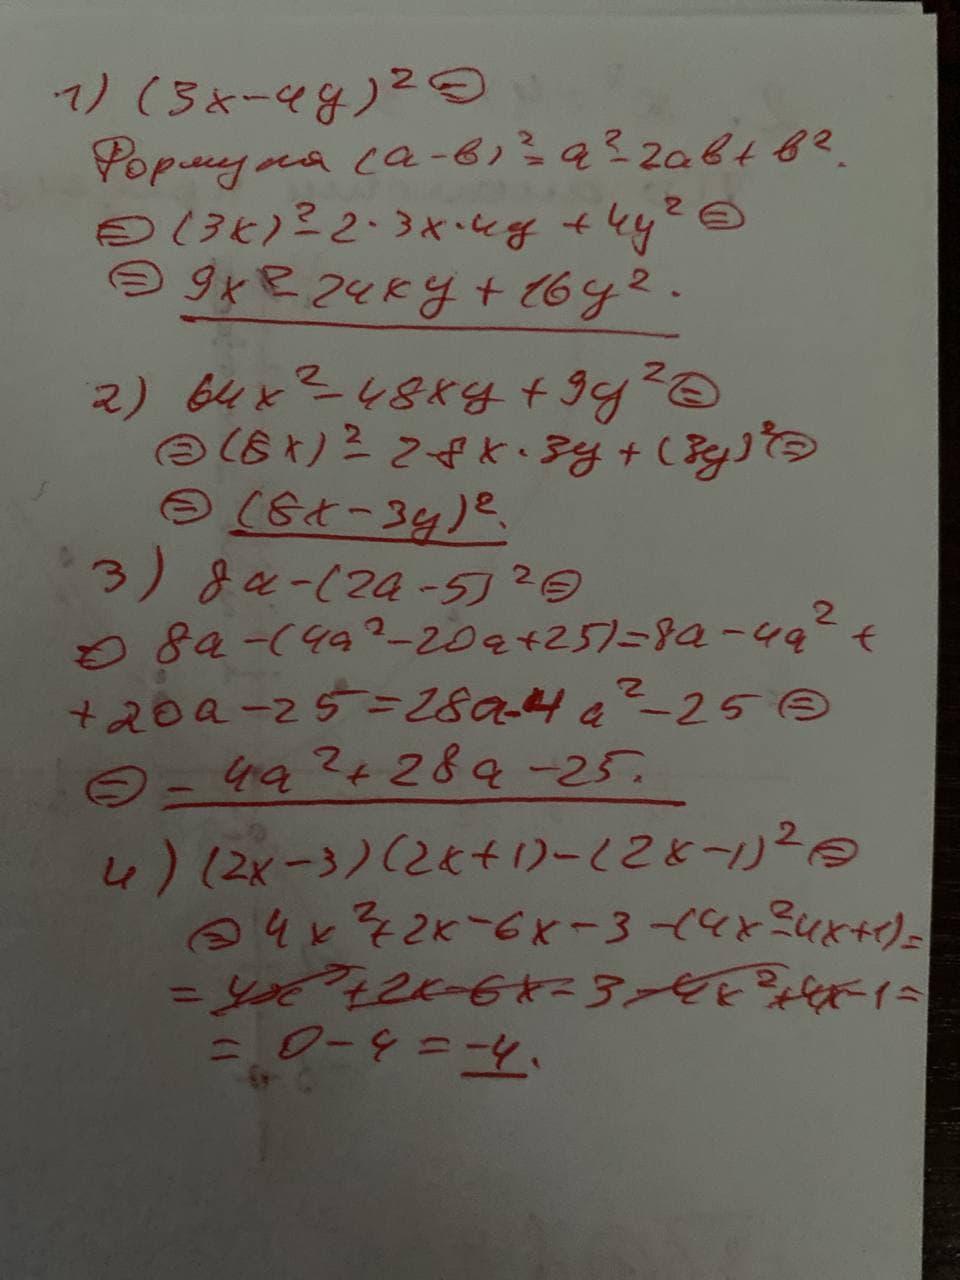 1) (3x-4y)² =
Формула (a-в)² = a² - 2aв + в².
= (3x)² - 2·3x·4y + 4y² =
= 9x² - 24xy + 16y².
2) 64x² - 48xy + 9y² =
= (8x)² - 2·8x·3y + (3y)² =
= (8x-3y)².
3) 8a-(2a-5)² =
= 8a-(4a²-20a+25)=8a-4a²+
+20a-25=28a-4a²-25 =
= -4a²+28a-25.
4) (2x-3)(2x+1)-(2x-1)² =
= 4x²+2x-6x-3-(4x²-4x+1)=
= 4x²+2x-6x-3-4x²+4x-1=
= 0-4=-4.